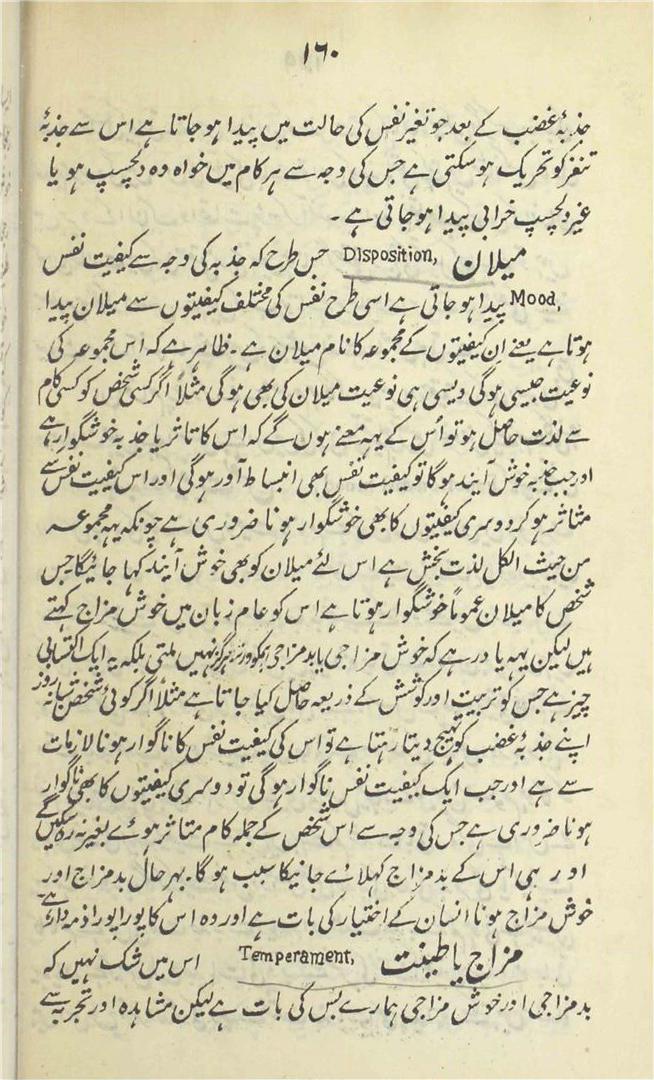 ۱۶۰
جذبۂ غضب کے بعد جو تغیر نفس کی حالت میں پیدا ہو جاتا ہے اس سے جذبۂ
تنفر کو تحریک ہو سکتی ہے جس کی وجہ سے ہر کام میں خواہ وہ دلچسپ ہو یا
غیر دلچسپ خرابی پیدا ہو جاتی ہے ۔
میلان Disposition, جس طرح کہ جذبہ کی وجہ سے کیفیت نفس
Mood, پیدا ہو جاتی ہے اسی طرح نفس کی مختلف کیفیتوں سے میلان پیدا
ہوتا ہے یعنے ان کیفیتوں کے مجموعہ کا نام میلان ہے ۔ ظاہر ہے کہ اس مجموعہ کی
نوعیت جیسی ہوگی ویسی ہی نوعیت میلان کی بھی ہوگی مثلاً اگر کسی شخص کو کسی کام
سے لذت حاصل ہو تو اُس کے یہہ معنے ہوں گے کہ اس کا تاثر یا جذبہ خوشگوار ہے
اور جب جذبہ خوش آیند ہوگا تو کیفیت نفس بھی انبساط آور ہوگی اور اس کیفیت نفس سے
متاثر ہو کر دوسری کیفیتوں کا بھی خوشگوار ہونا ضروری ہے چونکہ یہہ مجموعہ
من حیث الکل لذت بخش ہے اس لئے میلان کو بھی خوش آیند کہا جائیگا جس
شخص کا میلان عموماً خوشگوار ہوتا ہے اس کو عام زبان میں خوش مزاج کہتے
ہیں لیکن یہہ یاد رہے کہ خوش مزاجی یا بد مزاجی ہمکو ورثہ ہرگز نہیں ملتی بلکہ یہ ایک اکتسابی
چیز ہے جس کو تربیت اور کوشش کے ذریعہ حاصل کیا جاتا ہے مثلاً اگر کوئی شخص شبانہ روز
اپنے جذبۂ غضب کو تہیج دیتا رہتا ہے تو اس کی کیفیت نفس کا ناگوار ہونا لازمات
سے ہے اور جب ایک کیفیت نفس ناگوار ہوگی تو دوسری کیفیتوں کا بھی ناگوار
ہونا ضروری ہے جس کی وجہ سے اس شخص کے جملہ کام متاثر ہوئے بغیر نہ رہ سکیں گے
اور یہی اس کے بد مزاج کہلائے جانیکا سبب ہوگا ۔ بہر حال بد مزاج اور
خوش مزاج ہونا انسان کے اختیار کی بات ہے اور وہ اس کا پورا پورا ذمہ دار ہے
مزاج یا طینت Temperament, اس میں شک نہیں کہ
بد مزاجی اور خوش مزاجی ہمارے بس کی بات ہے لیکن مشاہدہ اور تجربہ سے